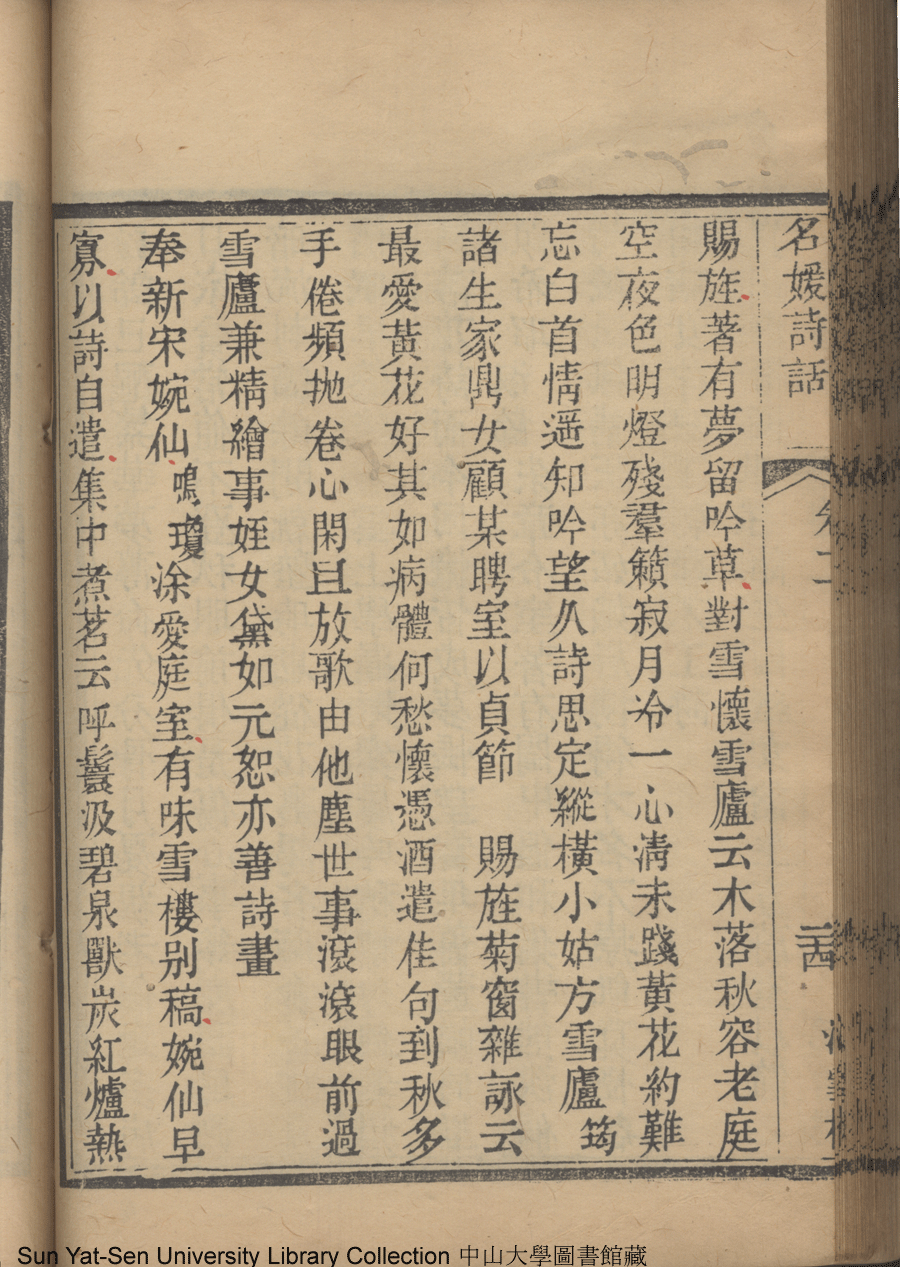 名媛詩話
二十四
賜旌著有夢留吟草對雪懷雪廬云木落秋容老庭
空夜色明燈殘羣籟寂月冷一心清未踐黃花約難
忘白首情遥知吟望久詩思定縱橫小姑方雪廬筠
諸生家鼎女顧某聘室以貞節　賜旌菊窗雜詠云
最愛黃花好其如病體何愁懷憑酒遣佳句到秋多
手倦頻抛卷心閑且放歌由他塵世事滾滾眼前過
雪廬兼精繪事姪女黛如元恕亦善詩畫
奉新宋婉仙鳴瓊涂愛庭室有味雪樓別稿婉仙早
寡以詩自遣集中煮茗云呼鬟汲碧泉獸炭紅爐熱
Sun Yat-Sen University Library Collection 中山大學圖書館藏